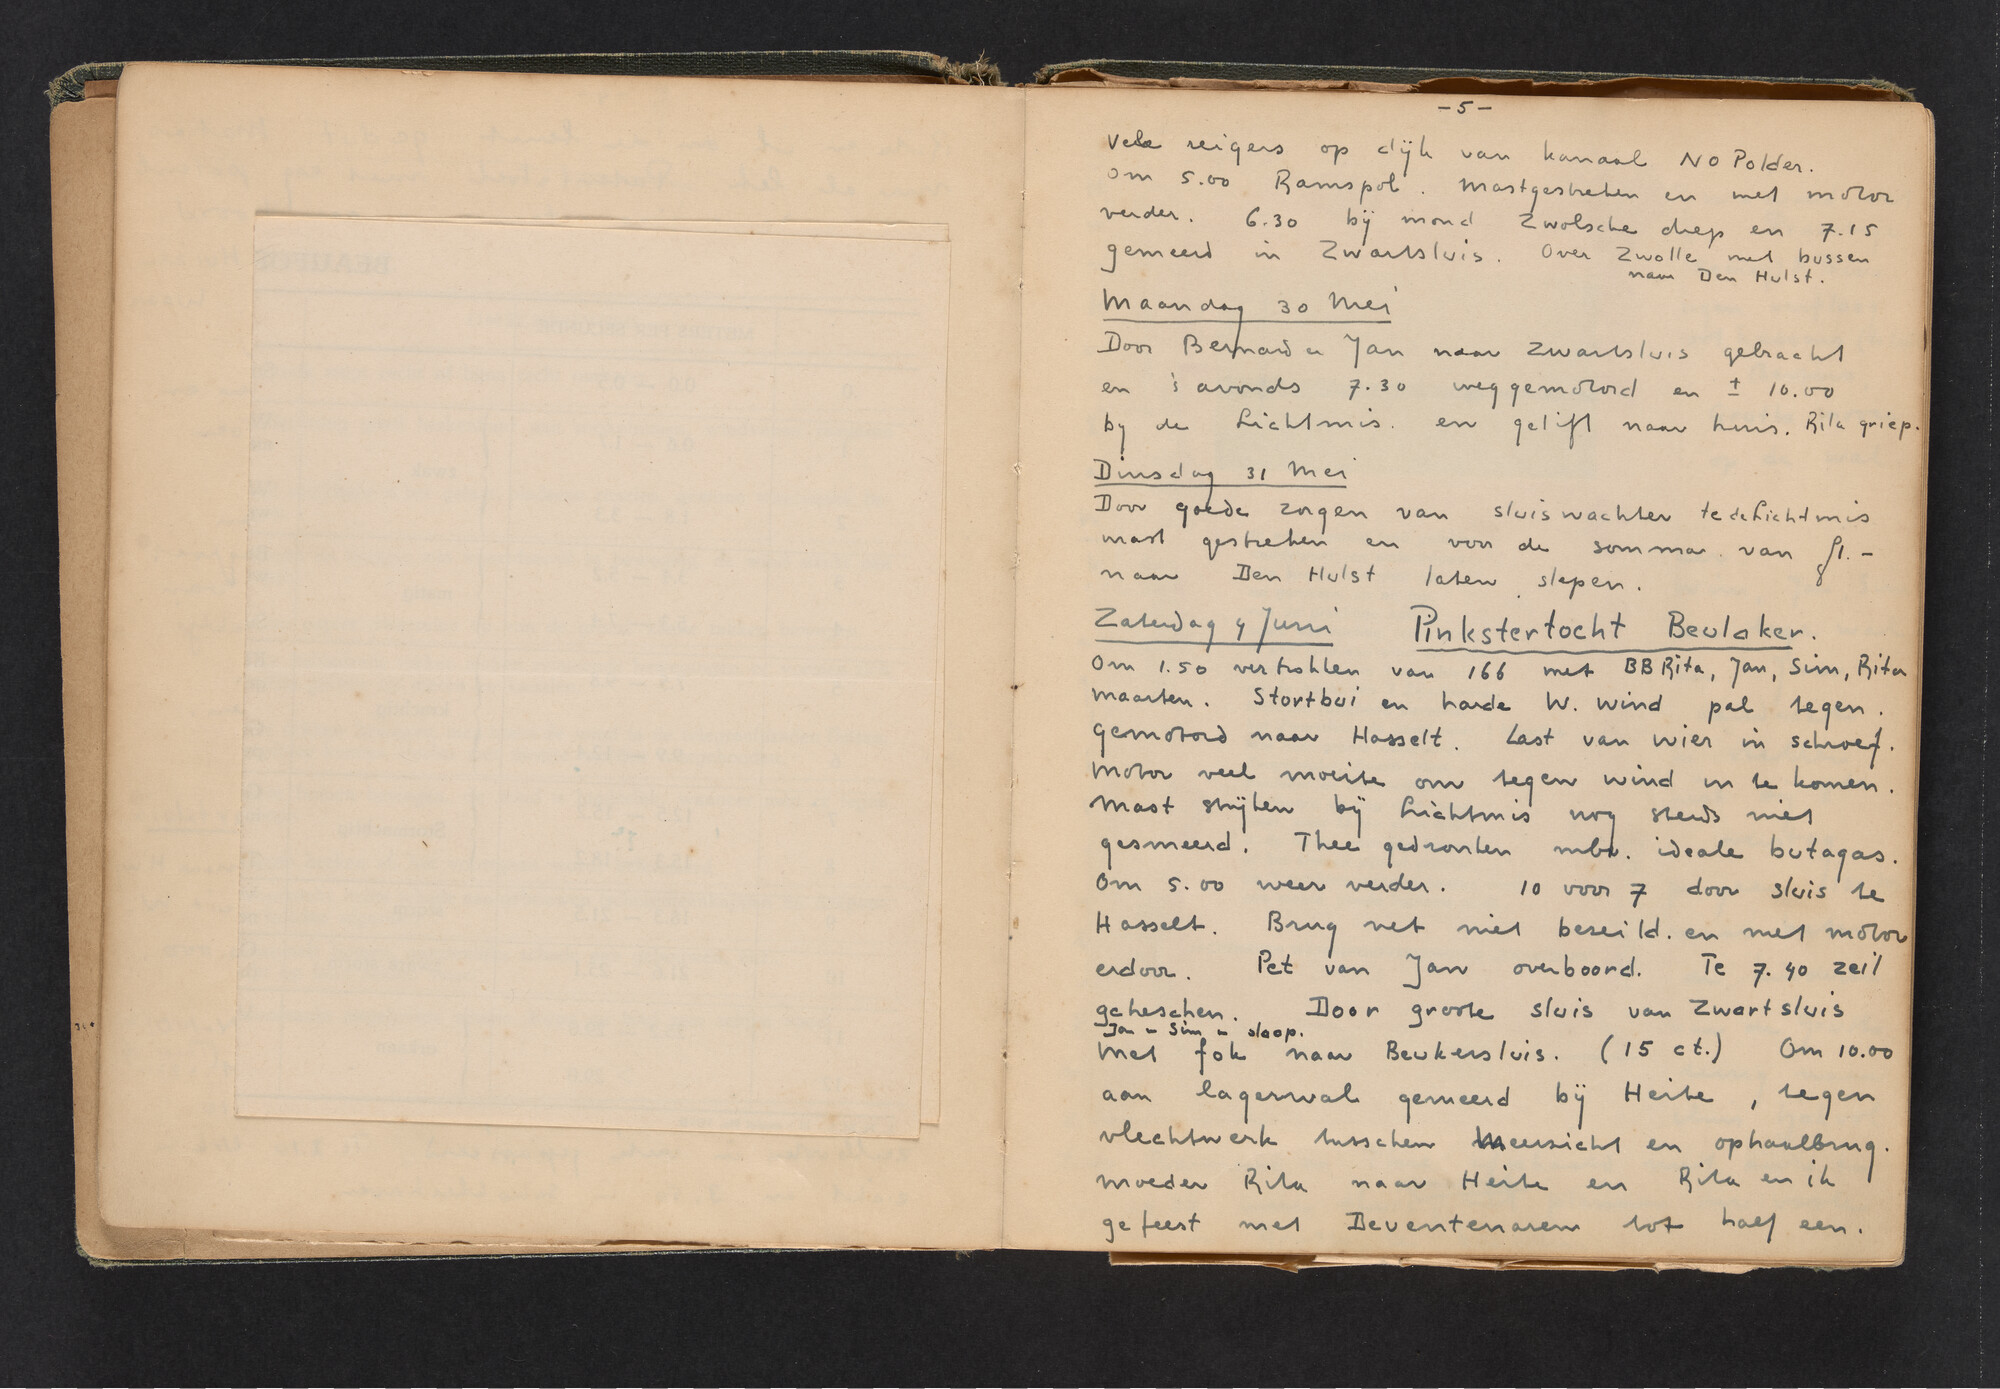 -5-
Vele reigers op dijk van kanaal NO Polder.
Om 5.00 Ramspol. Mastgestreken en met motor
verder. 6.30 bij mond Zwolsche diep en 7.15
gemeerd in Zwartsluis. Over Zwolle met bussen
naar Den Hulst.
Maandag 30 Mei
Door Bernard en Jan naar Zwartsluis gebracht
en 's avonds 7.30 weggemotord en ± 10.00
by de Lichtmis. en gelift naar huis. Rita griep.
Dinsdag 31 Mei
Door goede zorgen van sluiswachter te de Lichtmis
mast gestreken en voor de somma van f1.-
naar Den Hulst laten slepen.
Zaterdag 4 Juni Pinkstertocht Beulaker.
Om 1.50 vertrokken van 166 met BB Rita, Jan, Sim, Rita
Maarten. Stortbui en harde W. wind pal tegen.
Gemotord naar Hasselt. Last van wier in schroef.
Motor veel moeite om tegen wind in te komen.
Mast strijken bij Lichtmis nog steeds niet
gesmeerd. Thee gedronken mbv. ideale butagas.
Om 5.00 weer verder. 10 voor 7 door sluis te
Hasselt. Brug net niet bezeild. en met motor
erdoor. Pet van Jan overboord. Te 7.40 zeil
geheschen. Door groote sluis van Zwartsluis
Jan en Sim in sloop.
Met fok naar Beukersluis. (15 ct.) Om 10.00
aan lagerwal gemeerd bij Heite, tegen
vlechtwerk tusschen Meerzicht en ophaalbrug.
Moeder Rita naar Heite en Rita en ik
gefeest met Deventenaren tot half een.